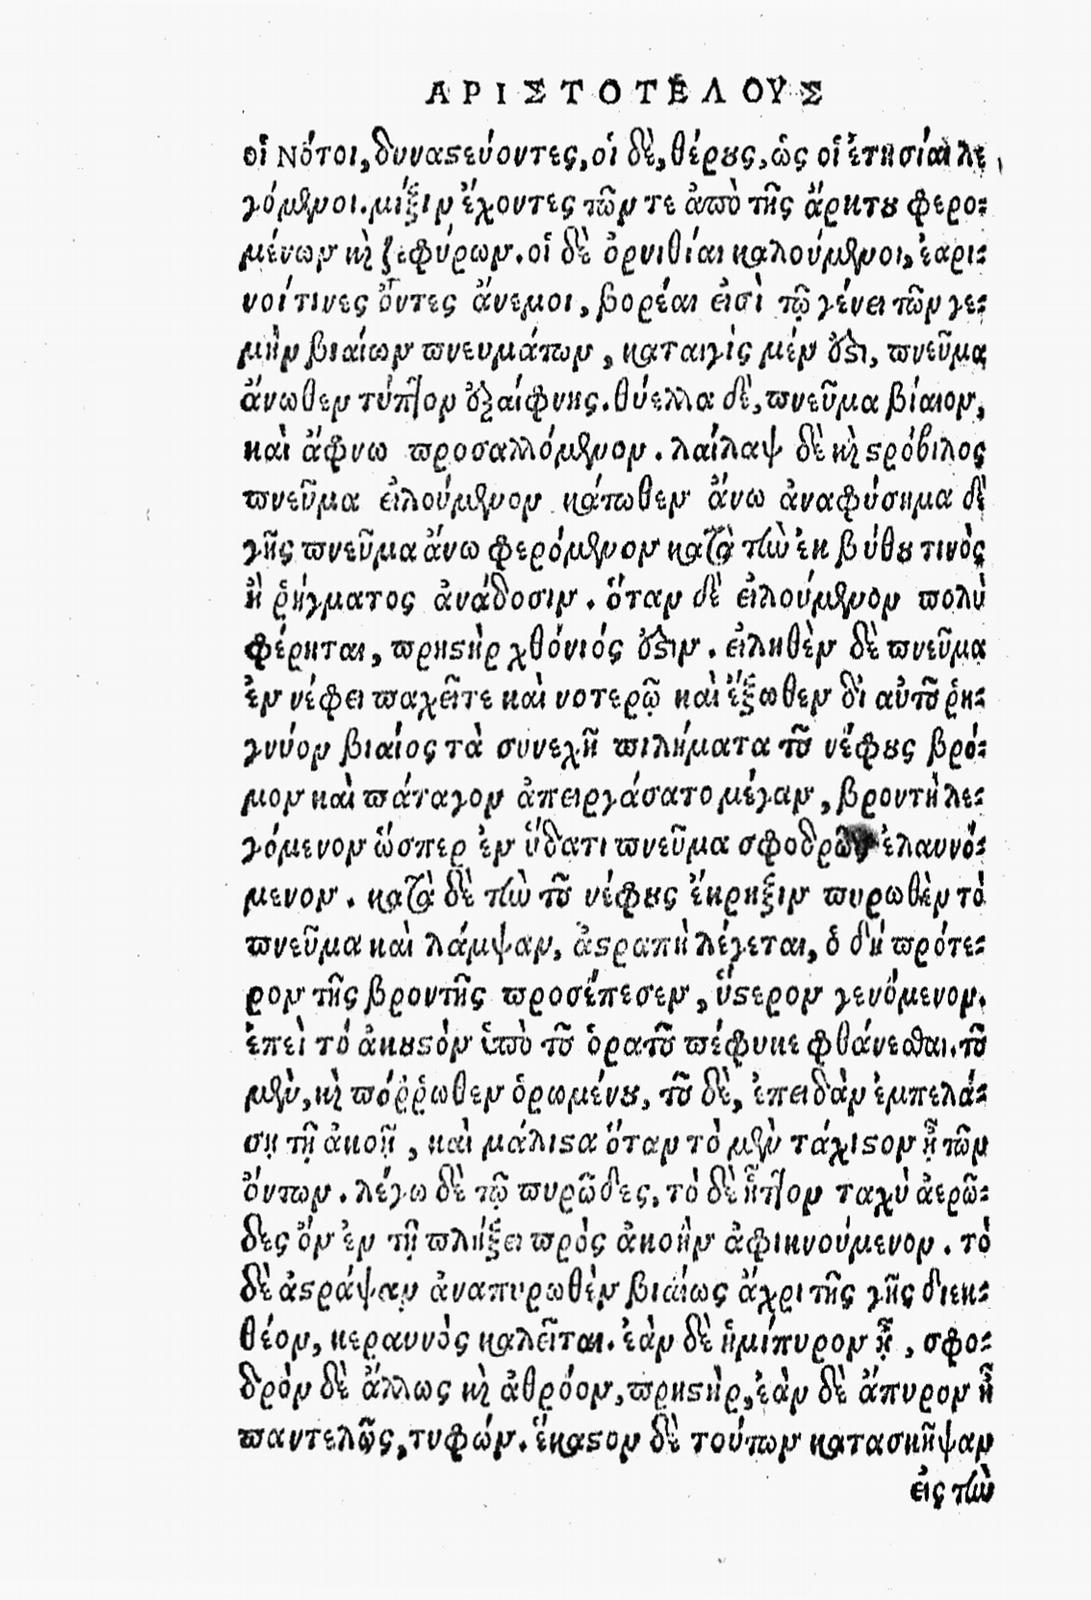 ΑΡΙΣΤΟΤΕΛΟΥΣ
οἱ Νότοι, δυναστεύοντες, οἱ δὲ, θέρους, ὡς οἱ ἐτησίαι λε
γόμενοι. μίξιν ἔχοντες τῶν τε ἀπὸ τῆς ἄρκτου φερο:
μένων καὶ ζεφύρων. οἱ δὲ ὀρνιθίαι καλούμενοι, ἐαρι:
νοί τινες ὄντες ἄνεμοι, βορέαι εἰσὶ τῷ γένει τῶν γε:
μὴν βιαίων πνευμάτων, καταιγὶς μέν ἐστι, πνεῦμα
ἄνωθεν τύπτον ἐξαίφνης. θύελλα δὲ, πνεῦμα βίαιον,
καὶ ἄφνω προσαλλόμενον. λαίλαψ δὲ καὶ στρόβιλος
πνεῦμα εἰλούμενον κάτωθεν ἄνω ἀναφύσημα δὲ
γῆς πνεῦμα ἄνω φερόμενον κατὰ τὴν ἐκ βύθου τινὸς
ἢ ῥήγματος ἀνάδοσιν. ὅταν δὲ εἰλούμενον πολὺ
φέρηται, πρηστὴρ χθόνιός ἐστιν. εἰληθὲν δὲ πνεῦμα
ἐν νέφει παχεῖ τε καὶ νοτερῷ καὶ ἔξωθεν δι αὐτοῦ ῥη:
γνύον βιαίος τὰ συνεχῆ πιλήματα τοῦ νέφους βρό:
μον καὶ πάταγον ἀπειργάσατο μέγαν, βροντὴ λε:
γόμενον ὥσπερ ἐν ὕδατι πνεῦμα σφοδρῶς ἐλαυνό:
μενον. κατὰ δὲ τὴν τοῦ νέφους ἔκρηξιν πυρωθὲν τὸ
πνεῦμα καὶ λάμψαν, ἀστραπὴ λέγεται, ὁ δὴ πρότε:
ρον τῆς βροντῆς προσέπεσεν, ὕστερον γενόμενον.
ἐπεὶ τό ἀκουστὸν ὑπὸ τοῦ ὁρατοῦ πέφυκε φθάνεσθαι. τοῦ
μὲν, καὶ πόῤῥωθεν ὁρωμένου, τοῦ δὲ, ἐπειδὰν ἐμπελά:
σῃ τῇ ἀκοῇ, καὶ μάλιστα ὅταν τὸ μὲν τάχιστον ᾖ τῶν
ὄντων. λέγω δὲ τῷ πυρῶδες, τὸ δὲ ἧττον ταχὺ ἀερῶ:
δες ὂν ἐν τῇ πλήξει πρὸς ἀκοὴν ἀφικνούμενον. τὸ
δὲ ἀστράψαν ἀναπυρωθὲν βιαίως ἄχρι τῆς γῆς διεκ:
θέον, κεραυνὸς καλεῖται. ἐὰν δὲ ἡμίπυρον ᾖ, σφο:
δρὸν δὲ ἄλλως καὶ ἀθρόον, πρηστὴρ, ἐὰν δὲ ἄπυρον ᾖ
παντελῶς, τυφών. ἕκαστον δὲ τούτων κατασκῆψαν
εἰς τὴν